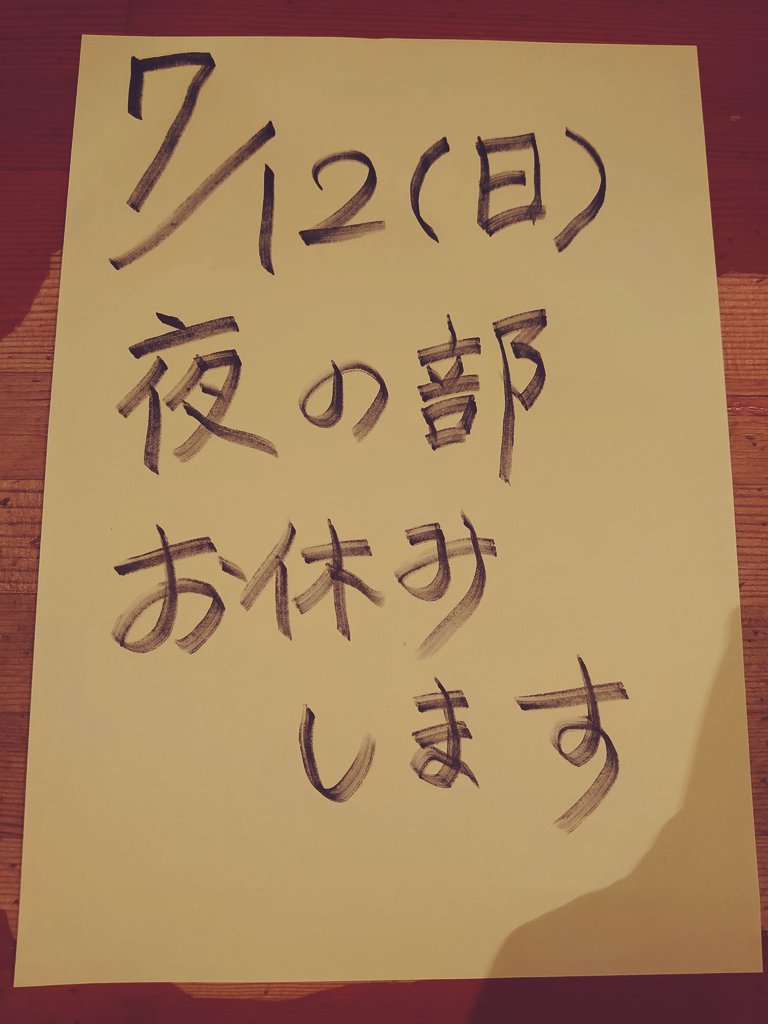 7/12(日)
夜の部
お休み
します